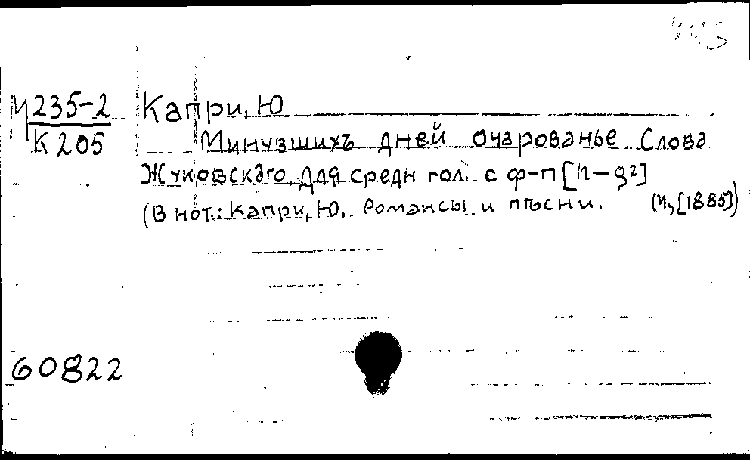 М 235-2
К 205
Капри, Ю
Минувшихъ дней очарованье. Слова
Жуковскаго. Для средн гол. с ф-п [h-g²]
(В нот.: Капри, Ю. Романсы и пѣсни. (М, [1885])
60822